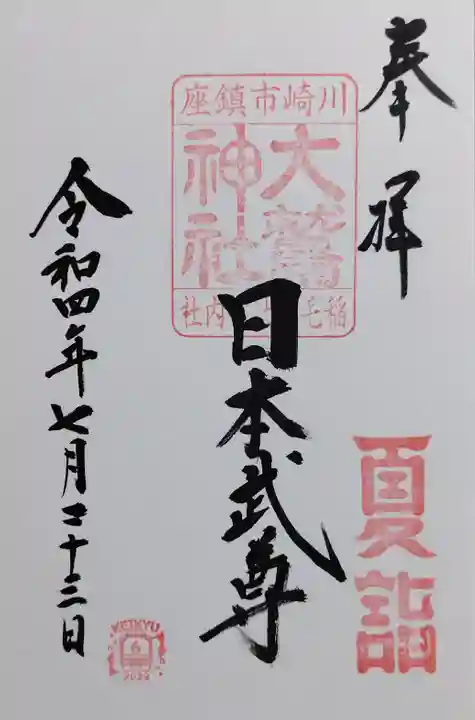 奉拝
川崎市鎮座
大鷲
神社
稲毛
内社
日本武尊
夏詣
令和四年七月二十三日
KEIKYU
6